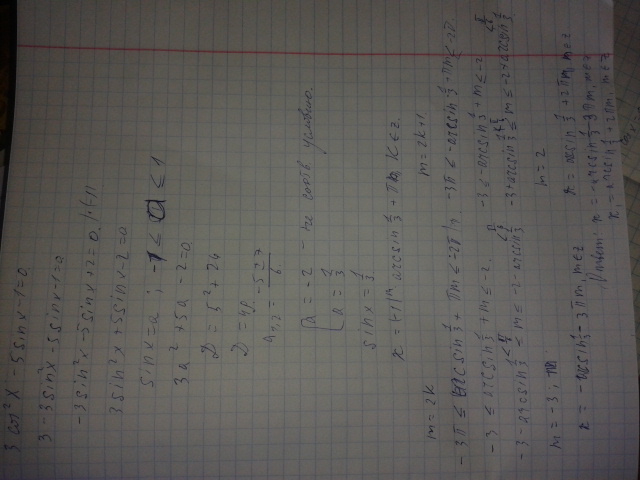 3 cos²x - 5 sin x - 1 = 0
3 - 3 sin²x - 5 sin x - 1 = 0
-3 sin²x - 5 sin x + 2 = 0 | · (-1)
3 sin²x + 5 sin x - 2 = 0
sin x = a ; -1 ≤ a ≤ 1
3a² + 5a - 2 = 0
D = 5² + 24
D = 49
a₁,₂ = (-5 ± 7)/6
[ a = -2 - не соотв условию.
[ a = 1/3
sin x = 1/3
x = (-1)ᵐ arcsin 1/3 + πm, k ∈ z.
m = 2k
-3π ≤ arcsin 1/3 + πm ≤ -2π | π
-3 ≤ arcsin 1/3 + m ≤ -2
-3 - arcsin 1/3 ≤ m ≤ -2 - arcsin 1/3
m = -3 ;
x = -arcsin 1/3 - 3πm, m ∈ z
m = 2k+1
-3π ≤ -arcsin 1/3 + πm ≤ -2π
-3 ≤ -arcsin 1/3 + m ≤ -2
-3 + arcsin 1/3 ≤ m ≤ -2 + arcsin 1/3
m = 2
x = arcsin 1/3 + 2πm, m ∈ z
Ответ: x = -arcsin 1/3 - 3πm, m ∈ z
x = arcsin 1/3 + 2πm, m ∈ z